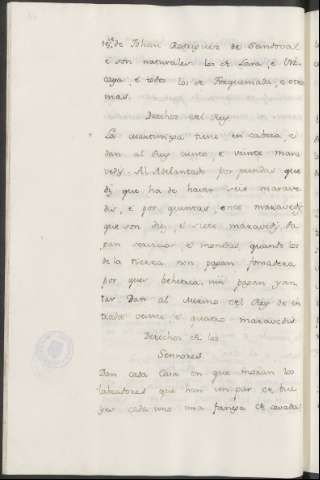 fijo de Johan Rodriguez de Sandoval
e son naturales los de Lara, e Viz
caya, e todos los de Torquemada, e otros
mas.
Derechos del Rey
La martiniega tiene en cabeza e
dan al Rey ciento, e veinte mara
vedis. Al Adelantado por prendas que
diz que ha de haver seis marave
dis, e por quintas, once maravedis
que son diez e siete maravedis. Pa
gan servicios e monedas quando los
de la tierra non pagan fonsadera
por quer behetria, nin pagan yan
tar. Dan al Merino del Rey de en
trada veinte e quatro maravedis
Derechos de los
Sennores
Dan cada casa en que moran los
labradores que han un par de bue
yes cada uno una fanega de cevada